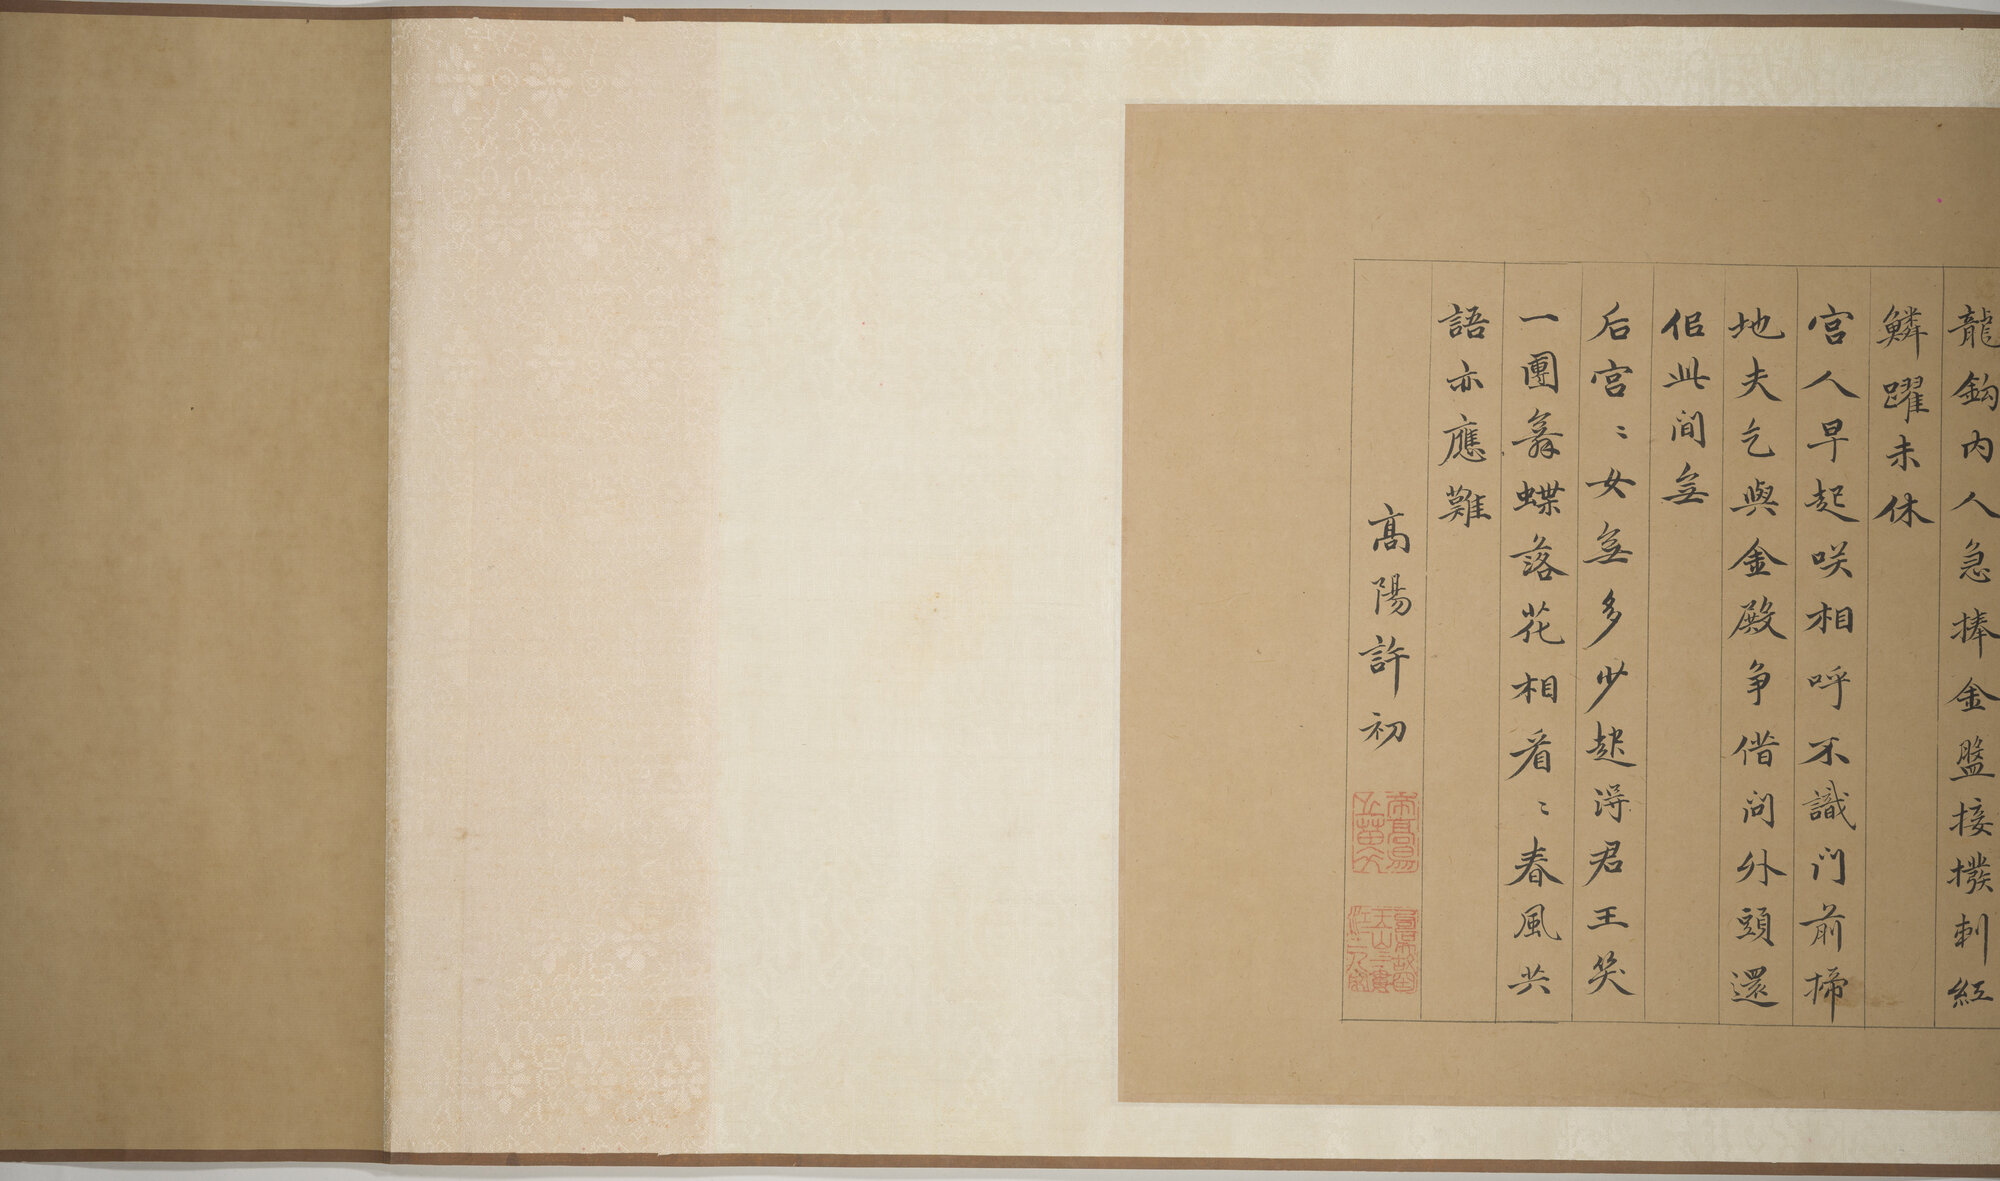 龍鈎內人急捧金盤接撥刺紅
鱗躍未休
宮人早起咲相呼不識門前掃
地夫乞與金殿争借問外頭還
佀此間無
后宮〻女無多少趂得君王笑
一團舞蝶落花相看〻春風共
語亦應難
高陽許初